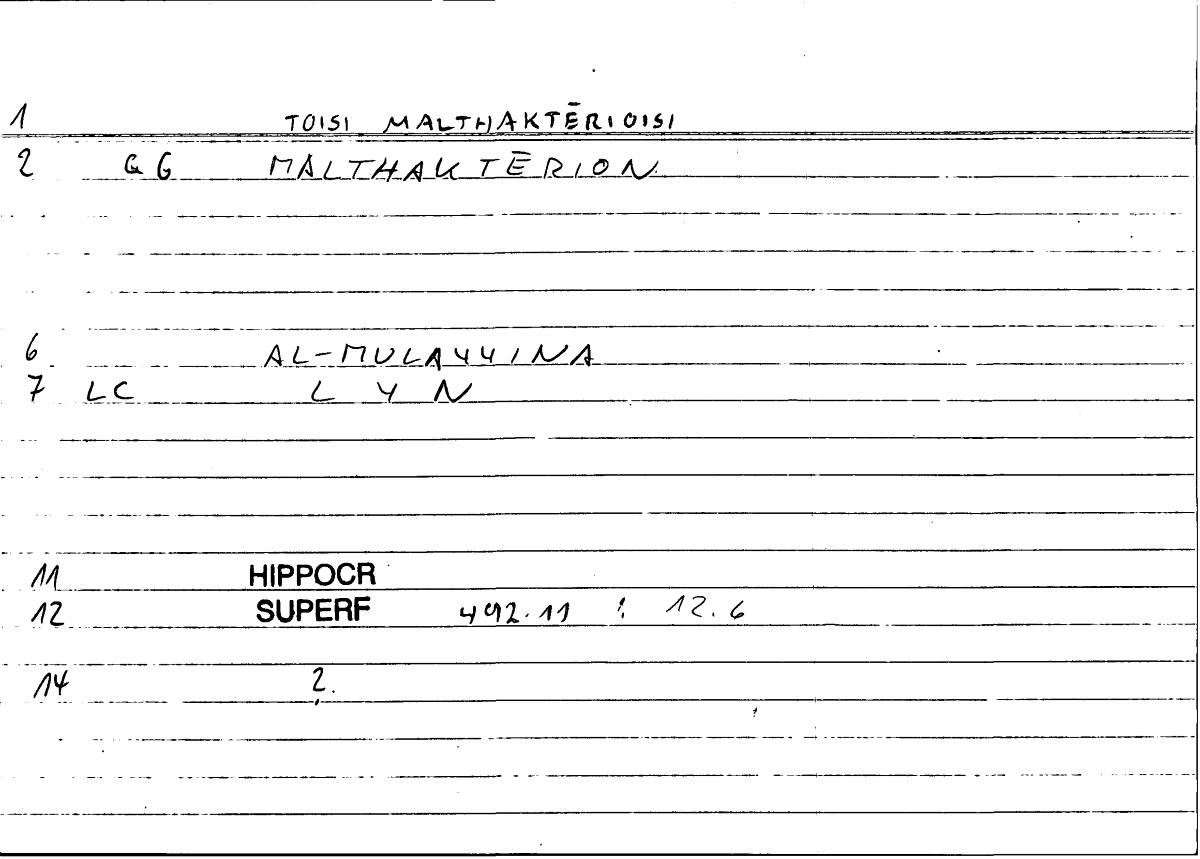 1 TOISI MALTHAKTĒRIOISI
2 GG MALTHAKTĒRION
6 AL-MULAYYINA
7 LC L Y N
11 HIPPOCR
12 SUPERF 492.11 : 12.6
14 2.